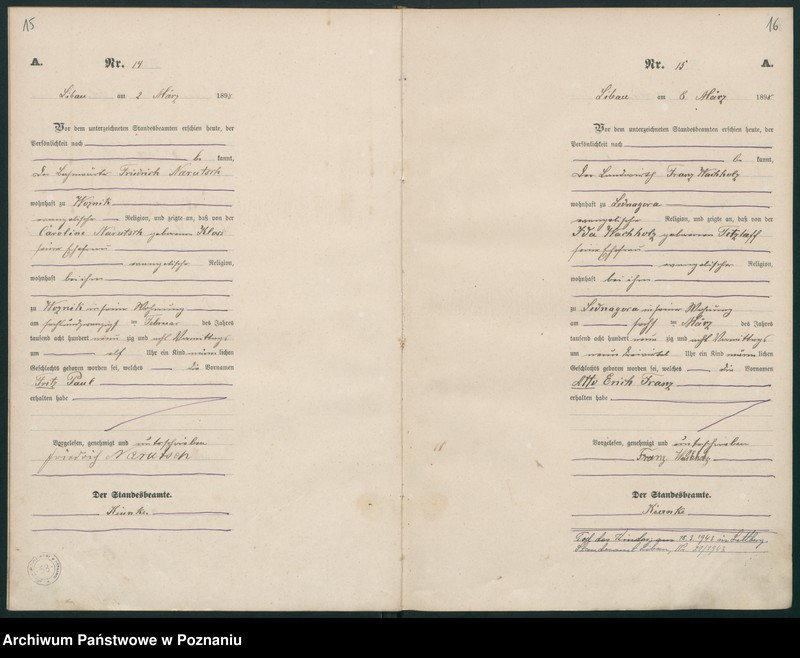 15
A.
Nr. 14
Libau am 2 März 1898
Vor dem unterzeichneten Standesbeamten erschien heute, der
Persönlichkeit nach
be kannt,
Der Friedrich Narutsch
wohnhaft zu Woznik
evangelische Religion, und zeigte an, daß von der
Caroline Narutsch geborenen Klos
seine Ehefrau
evangelische Religion,
wohnhaft bei ihm
zu Woznik in seine Wohnung
am sechsundzwanzigsten Februar des Jahres
tausend acht hundert neun zig und acht Vormittags
um elf Uhr ein Kind männ lichen
Geschlechts geboren worden sei, welches die Vornamen
Fritz Paul
erhalten habe
Vorgelesen, genehmigt und unterschrieben
Friedrich Narutsch
Der Standesbeamte.
16
Nr. 15
A.
Libau am 8 März 1898
Vor dem unterzeichneten Standesbeamten erschien heute, der
Persönlichkeit nach
be kannt,
Der Landwirth Franz Wachholz
wohnhaft zu Lednagora
evangelische Religion, und zeigte an, daß von der
Ida Wachholz geborenen Tetzlaff
seine Ehefrau
evangelische Religion,
wohnhaft bei ihm
zu Lednagora in seine Wohnung
am März des Jahres
tausend acht hundert neun zig und acht Vormittags
um neun dreiviertel Uhr ein Kind männ lichen
Geschlechts geboren worden sei, welches die Vornamen
Otto Erich Franz
erhalten habe
Vorgelesen, genehmigt und unterschrieben
Franz Wachholz
Der Standesbeamte.
Tod des Kindes am 1943 in
Standesamt
Archiwum Państwowe w Poznaniu